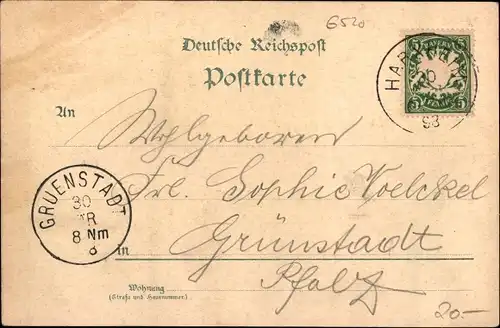 6520
Deutsche Reichspost
Postkarte
5 5
98
An
Wohlgeboren
Frl. Sophie Voelckel
GRUENSTADT
30
8 Nm
in Grünstadt
Pfalz
Wohnung
(Straße und Hausnummer.)
20-